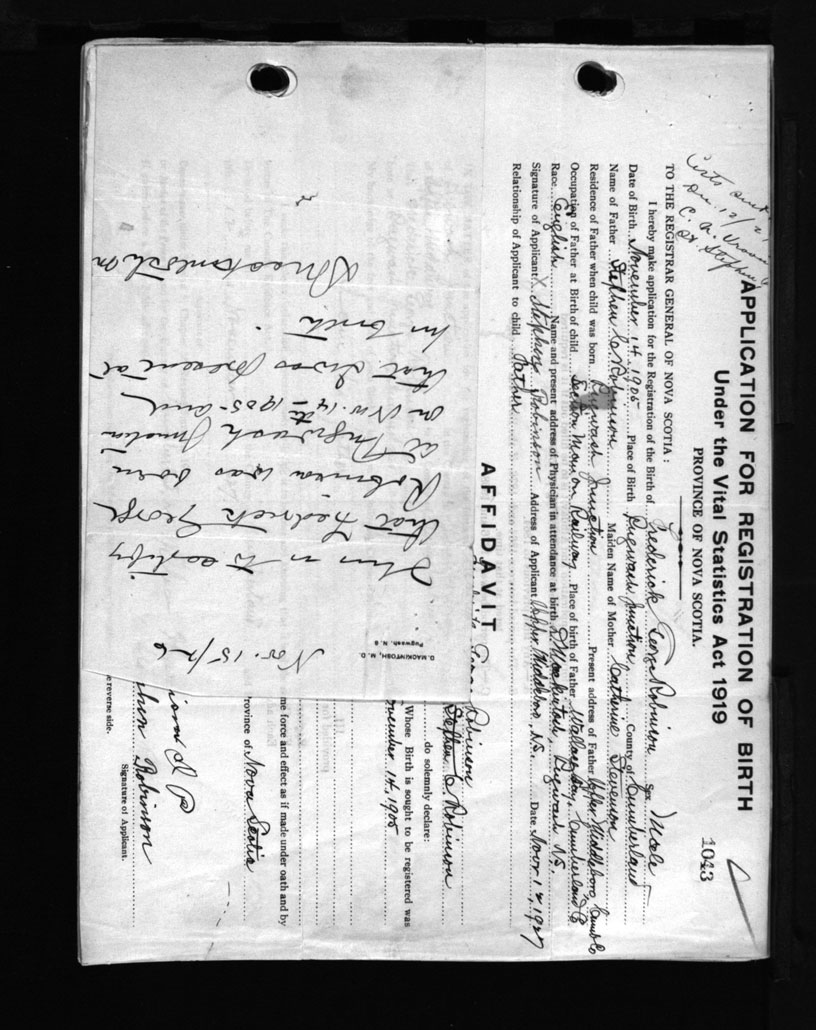 Certs sent
on 12/21
St. Stephen
APPLICATION FOR REGISTRATION OF BIRTH
Under the Vital Statistics Act 1919
PROVINCE OF NOVA SCOTIA.
1043
TO THE REGISTRAR GENERAL OF NOVA SCOTIA :
I hereby make application for the Registration of the Birth of Frederick George Robinson Sex Male
Date of Birth November 14 1905 Place of Birth Pugwash Junction County of Cumberland
Name of Father Stephen C. Robinson Maiden Name of Mother Catherine Stevenson
Residence of Father when child was born Pugwash Junction Present address of Father Upper Middleboro Cumb Co
Occupation of Father at Birth of child Section Man on Railway Place of birth of Father Wallace Bay, Cumberland Co
Race English Name and present address of Physician in attendance at birth D Mackintosh, Pugwash N.S.
Signature of Applicant X Stephen Robinson Address of Applicant Upper Middleboro, N.S. Date Nov 14, 1927
Relationship of Applicant to child Father
AFFIDAVIT
George Robinson
Stephen C Robinson
do solemnly declare:
Whose Birth is sought to be registered was
November 14, 1905
me force and effect as if made under oath and by
rovince of Nova Scotia
J P
Robinson
Signature of Applicant.
e reverse side.
D. MACKINTOSH, M. D.
Pugwash, N. S
Nov. 15/26
This is to certify
that Fedrick George
Robinson was born
at Pugwash Junction
on Nov. 14th 1905 and
that I was present at
his birth
D Mackintosh M